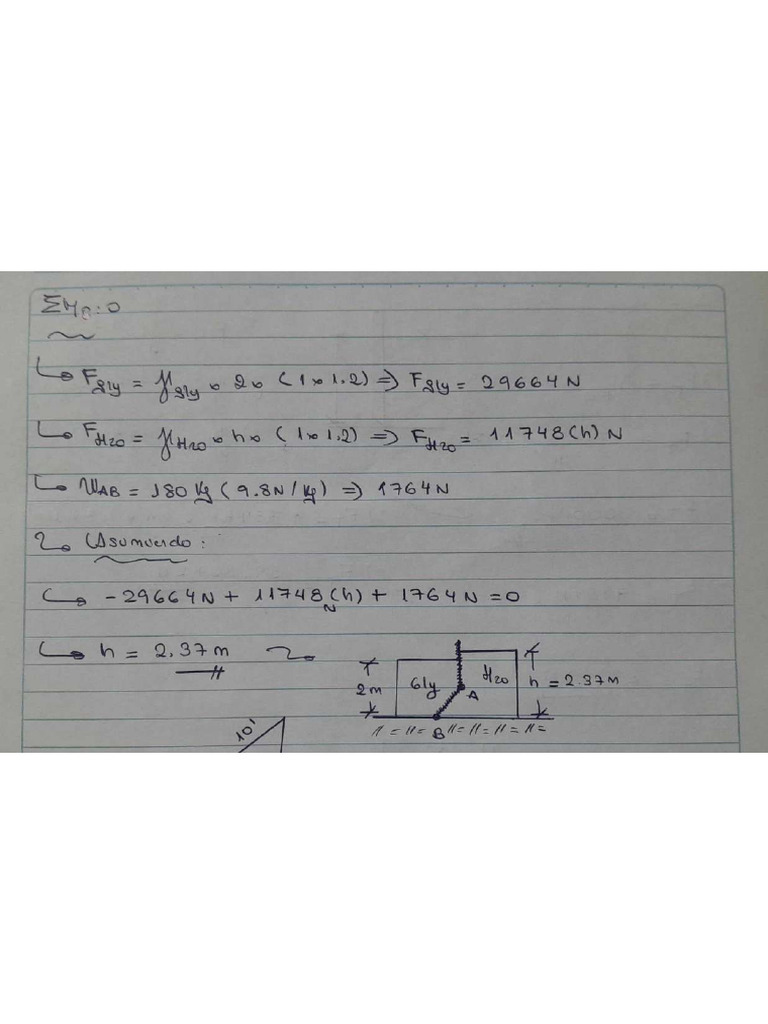 ΣM_B: 0
F_gly = γ_gly × 2 × (1 × 1.2) => F_gly = 29664 N
F_H20 = γ_H20 × h × (1 × 1.2) => F_H20 = 11748 (h) N
W_AB = 180 Kg (9.8 N/Kg) => 1764 N
Asumiendo:
-29664 N + 11748 (h) N + 1764 N = 0
h = 2.37 m
2m Gly A H20 h = 2.37 m
B
10'